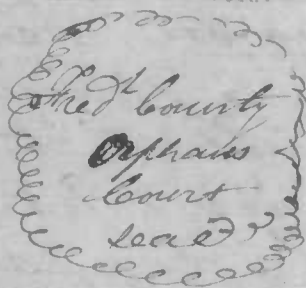 Fred<sup>k</sup> County
Orphans
Court
seal